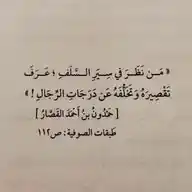 « مَـن نَظَـرَ في سِيَرِ السَّلَـفِ ؛ عَـرَفَ
تَقْصِيرَهُ وَتَخَلُّفَهُ عَن دَرَجَاتِ الرِّجَالِ ! »
[ حَمْدُونُ بنُ أَحْمَدَ القَصَّارُ ]
طبقات الصوفية : ص١١٢